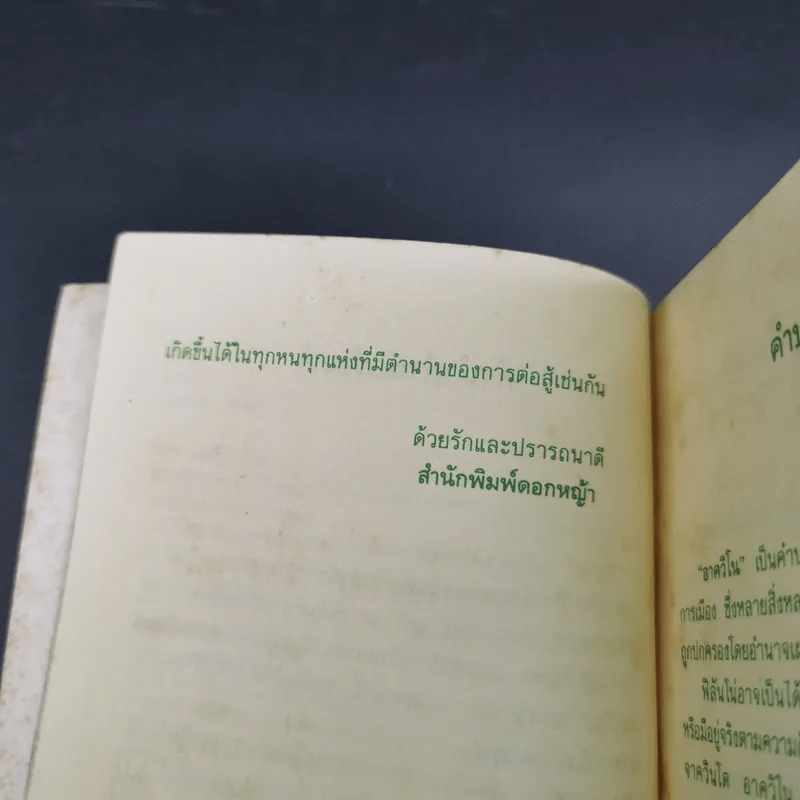 เกิดขึ้นได้ในทุกหนทุกแห่งที่มีตำนานของการต่อสู้เช่นกัน
ด้วยรักและปรารถนาดี
สำนักพิมพ์ดอกหญ้า
"อาควิโน" เป็นคำ
การเมือง ซึ่งหลายสิ่ง
ถูกปกครองโดยอำนาจ
ฟิลันโน่อาจเป็นได้
หรือมีอยู่จริงตามความ
จาควินโต อาควิโน